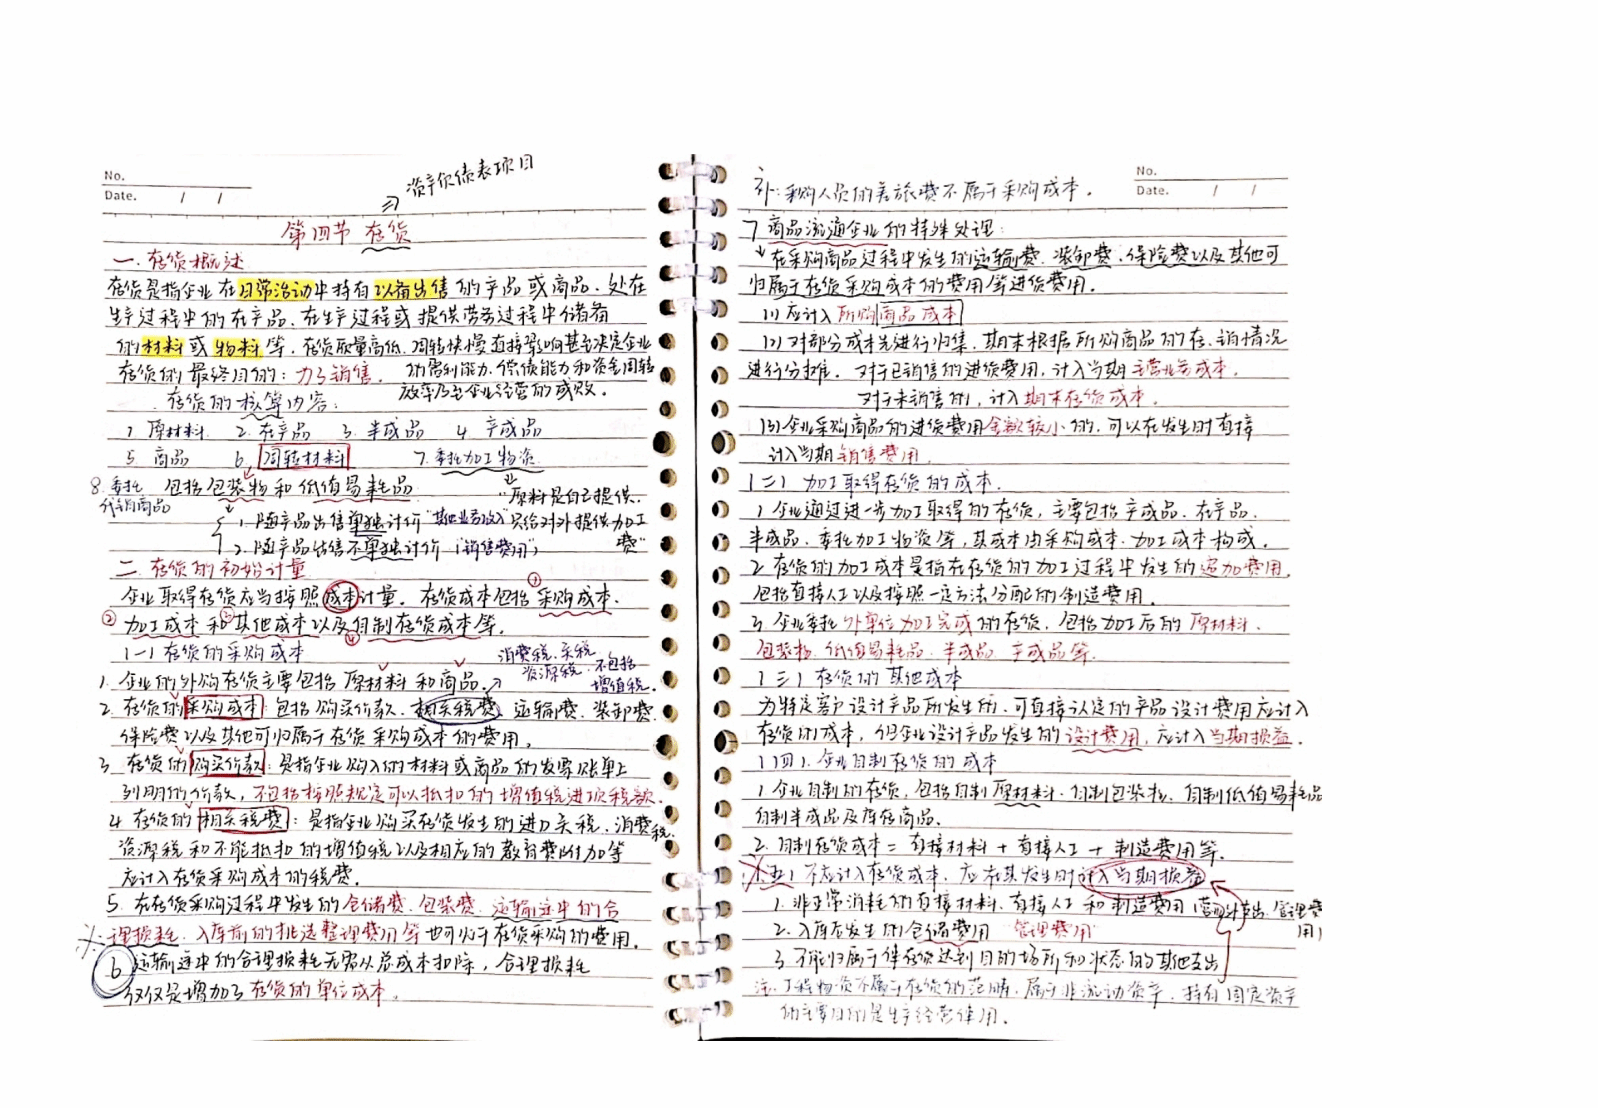 No.
Date.  /  /
⇒ 资产负债表项目
第四节 存货
一.存货概述
存货是指企业在日常活动中持有以备出售的产品或商品、处在
生产过程中的在产品、在生产过程或提供劳务过程中储备
的材料或物料等。存货质量高低、周转快慢直接影响甚至决定企业
存货的最终目的：为了销售。 的营利能力、偿债能力和资金周转
效率乃至企业经营的成败。
存货的核算内容：
1 原材料 2.在产品 3.半成品 4 产成品
5.商品 6.周转材料 7.委托加工物资
8.委托代销商品
包括包装物和低值易耗品
"原料是自己提供.
只给对外提供加工费"
1.随产品出售单独计价"其他业务收入"
2.随产品出售不单独计价（"销售费用"）
二.存货的初始计量
企业取得存货应当按照成本计量。存货成本包括①采购成本.
②加工成本和③其他成本以及④自制存货成本等。
(一)存货的采购成本
消费税.关税
资源税.不包括增值税.
1.企业的外购存货主要包括原材料和商品。
2.存货的采购成本：包括购买价款、相关税费、运输费、装卸费
保险费以及其他可归属于存货采购成本的费用。
3 存货的购买价款：是指企业购入的材料或商品的发票账单上
列明的价款，不包括按照规定可以抵扣的增值税进项税额.
4 存货的相关税费：是指企业购买存货发生的进口关税、消费税.
资源税和不能抵扣的增值税以及相应的教育费附加等
应计入存货采购成本的税费.
5.在存货采购过程中发生的仓储费、包装费、运输途中的合
理损耗、入库前的挑选整理费用等也可归于存货采购的费用。
6 运输途中的合理损耗无需从总成本扣除，合理损耗
仅仅是增加了存货的单位成本。
No.
Date.  /  /
补：采购人员的差旅费不属于采购成本。
7 商品流通企业的特殊处理：
↓在采购商品过程中发生的运输费、装卸费、保险费以及其他可
归属于存货采购成本的费用等进货费用。
(1)应计入所购商品成本
(2)对部分成本先进行归集，期末根据所购商品的存、销情况
进行分摊。对于已销售的进货费用，计入当期主营业务成本，
对于未销售的，计入期末存货成本。
(3)企业采购商品的进货费用金额较小的，可以在发生时直接
计入当期销售费用.
(二)加工取得存货的成本.
1 企业通过进一步加工取得的存货，主要包括产成品、在产品、
半成品、委托加工物资等，其成本由采购成本、加工成本构成。
2 存货的加工成本是指在存货的加工过程中发生的追加费用,
包括直接人工以及按照一定方法分配的制造费用.
3.企业委托外单位加工完成的存货，包括加工后的原材料、
包装物、低值易耗品、半成品、产成品等.
(三)存货的其他成本
为特定客户设计产品所发生的、可直接认定的产品设计费用应计入
存货的成本，但企业设计产品发生的设计费用，应计入当期损益.
(四).企业自制存货的成本
1 企业自制的存货，包括自制原材料、自制包装物、自制低值易耗品
自制半成品及库存商品.
2.自制存货成本 = 直接材料 + 直接人工 + 制造费用等.
(五)不应计入存货成本，应在其发生时计入当期损益
1.非正常消耗的直接材料、直接人工和制造费用(营业外支出、管理费用)
2.入库后发生的仓储费用 "管理费用"
3 不能归属于使存货达到目的场所和状态的其他支出
注：工程物资不属于存货的范畴，属于非流动资产，持有固定资产
的主要目的是生产经营使用.